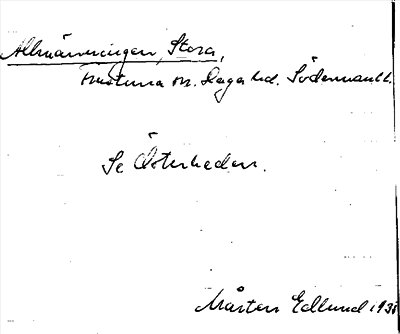 Allmänningen, Stora,
Husby sn. Daga hd. Södermanl. l.
Se Österheden.
Mårten Edlund 193